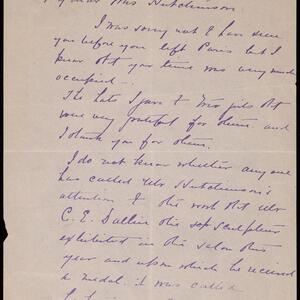 My dear Mrs Hutchinson
I was sorry not to have seen
you before you left Paris but I
know that your time was very much
occupied.
The hats I gave to two girls that
were very grateful for them and
I thank you for them.
I do not know whether any one
has called Mr Hutchinson's
attention to the work that Mr
C. E. Dallin the sculptor
exhibited in the salon this
year and upon which he received
a medal. it was called